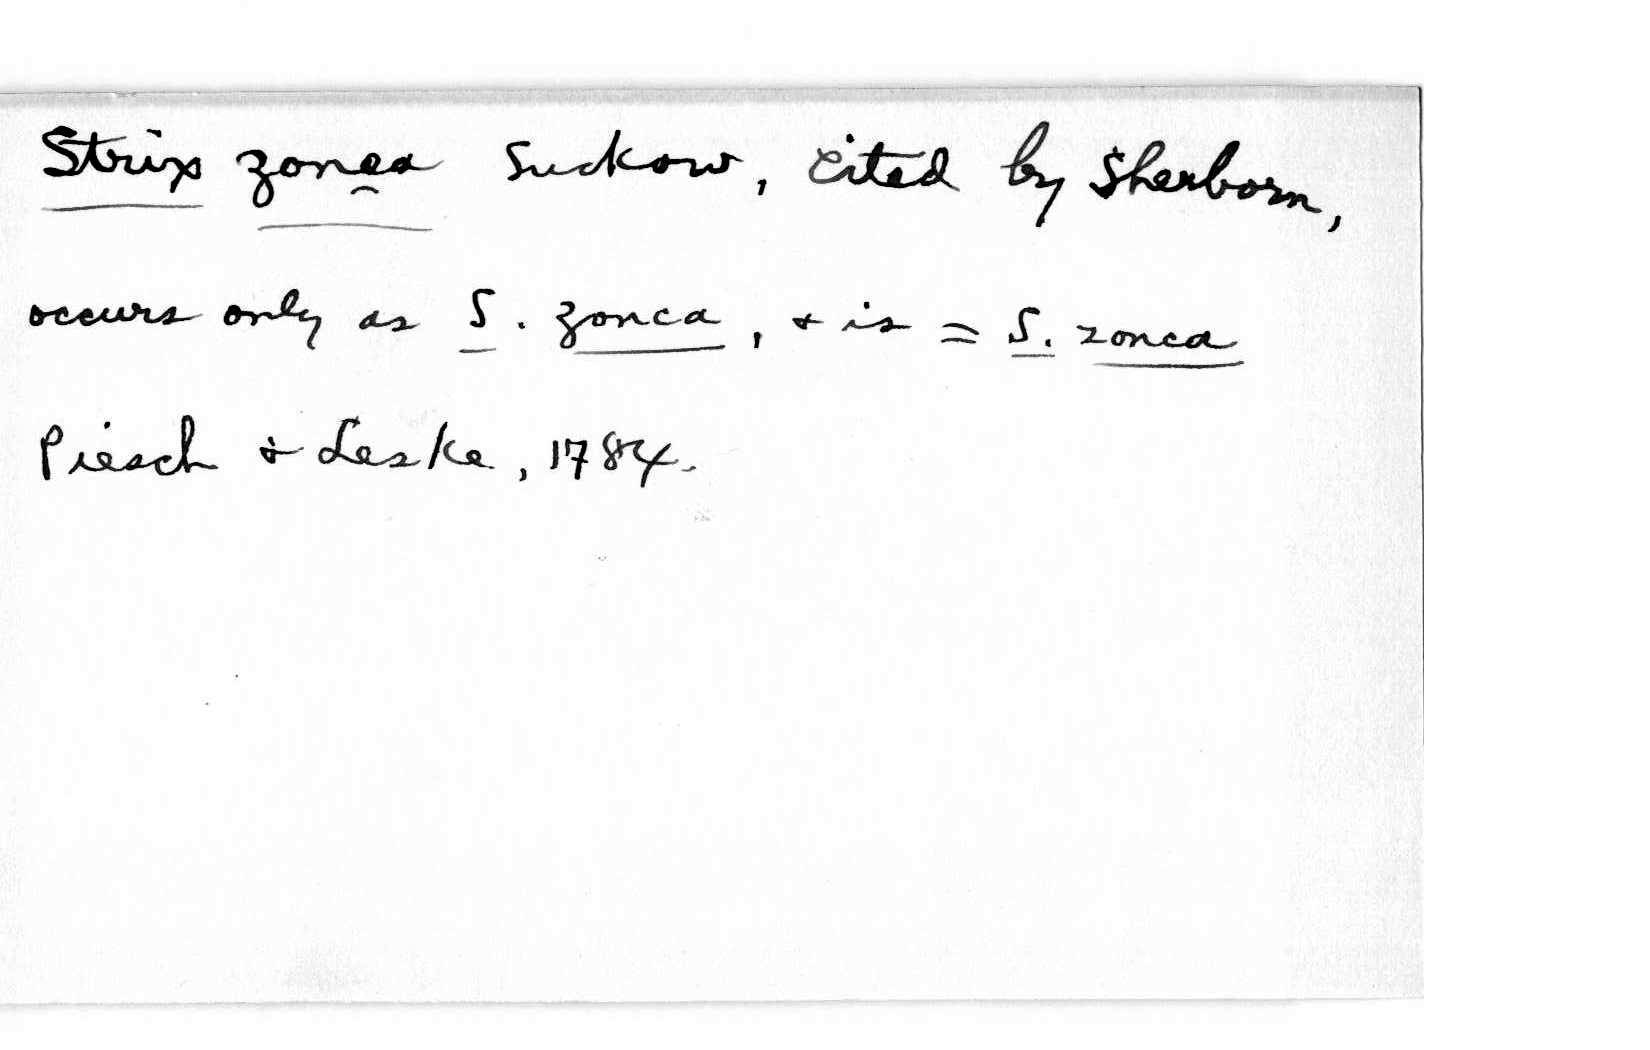 Strix zonea Suckow, cited by Sherborn,
occurs only as S. zonca, + is = S. zonca
Piesch + Leske, 1784.